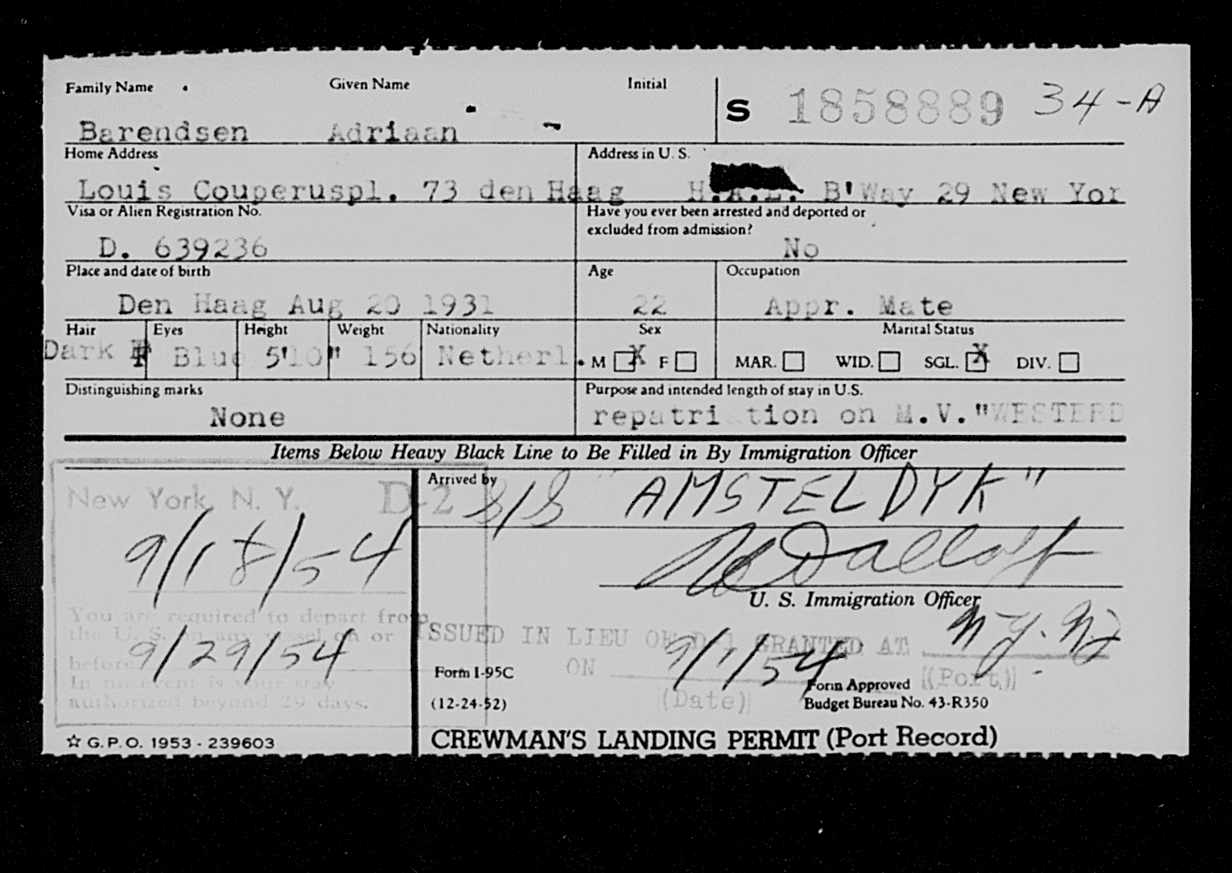 Family Name Given Name Initial
S 1858889 34-A
Barendsen Adriaan -
Home Address Address in U. S.
Louis Couperuspl. 73 den Haag H.A.L. B'Way 29 New Yor
Visa or Alien Registration No. Have you ever been arrested and deported or
excluded from admission?
D. 639236 No
Place and date of birth Age Occupation
Den Haag Aug 20 1931 22 Appr. Mate
Hair Eyes Height Weight Nationality Sex Marital Status
Dark Blue 5'10" 156 Netherl. M X F MAR. WID. SGL. X DIV.
Distinguishing marks Purpose and intended length of stay in U.S.
None repatri tion on M.V."WESTERD
Items Below Heavy Black Line to Be Filled in By Immigration Officer
Arrived by
New York, N. Y. D-2 S/S "AMSTELDYK"
9/18/54
U. S. Immigration Officer
You are required to depart from
the U. S. on any vessel on or
before 9/29/54
In no event is your stay
authorized beyond 29 days.
ISSUED IN LIEU OF D-1 GRANTED AT N.Y. NY
ON 9/1/54
(Date) (Port)
Form I-95C Form Approved
(12-24-52) Budget Bureau No. 43-R350
☆ G.P.O. 1953 - 239603 CREWMAN'S LANDING PERMIT (Port Record)